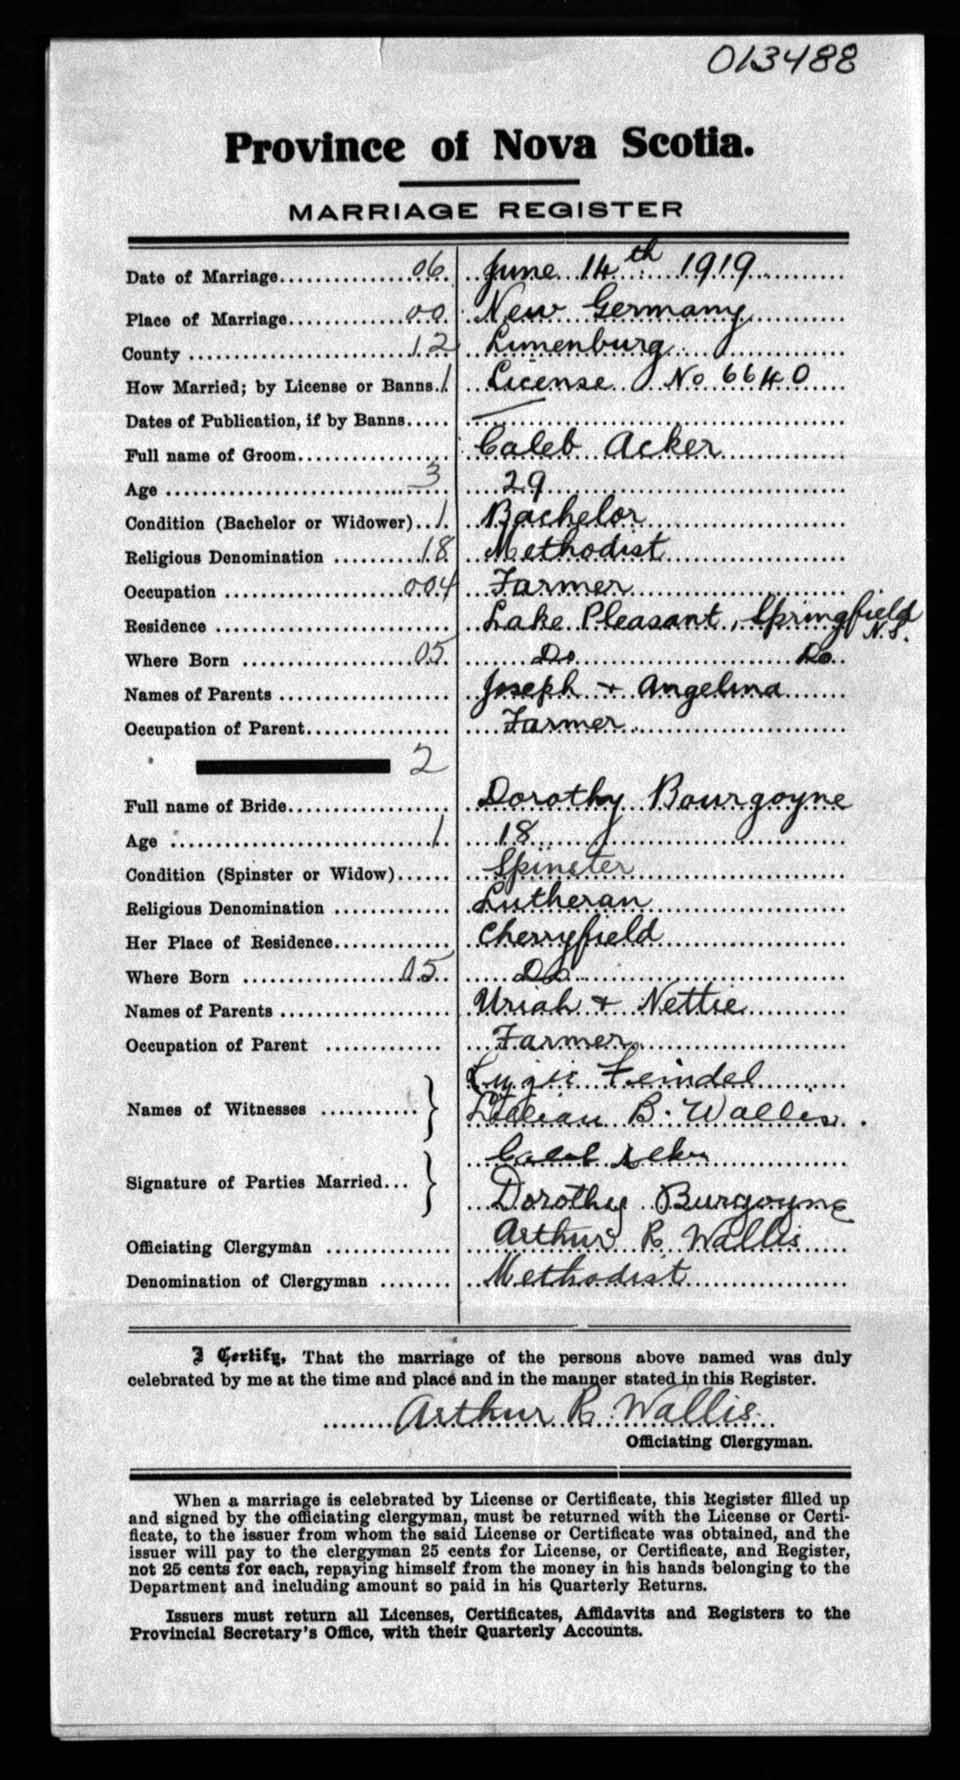 013488
Province of Nova Scotia.
MARRIAGE REGISTER
Date of Marriage 06 June 14th 1919
Place of Marriage 00 New Germany
County 12 Lunenburg
How Married; by License or Banns 1 License No 6640
Dates of Publication, if by Banns —
Full name of Groom Caleb Acker
Age 3 29
Condition (Bachelor or Widower) 1 Bachelor
Religious Denomination 18 Methodist
Occupation 004 Farmer
Residence Lake Pleasant, Springfield N.S.
Where Born 05 Do Do
Names of Parents Joseph + Angelina
Occupation of Parent Farmer
2
Full name of Bride Dorothy Bourgoyne
Age 1 18
Condition (Spinster or Widow) Spinster
Religious Denomination Lutheran
Her Place of Residence Cherryfield
Where Born 05 Do
Names of Parents Uriah + Nettie
Occupation of Parent Farmer
Names of Witnesses Feindel
Lillian B. Wallis.
Signature of Parties Married Caleb Acker
Dorothy Burgoyne
Officiating Clergyman Arthur R. Wallis
Denomination of Clergyman Methodist
I Certify, That the marriage of the persons above named was duly
celebrated by me at the time and place and in the manner stated in this Register.
Arthur R. Wallis
Officiating Clergyman.
When a marriage is celebrated by License or Certificate, this Register filled up
and signed by the officiating clergyman, must be returned with the License or Certi-
ficate, to the issuer from whom the said License or Certificate was obtained, and the
issuer will pay to the clergyman 25 cents for License, or Certificate, and Register,
not 25 cents for each, repaying himself from the money in his hands belonging to the
Department and including amount so paid in his Quarterly Returns.
Issuers must return all Licenses, Certificates, Affidavits and Registers to the
Provincial Secretary's Office, with their Quarterly Accounts.